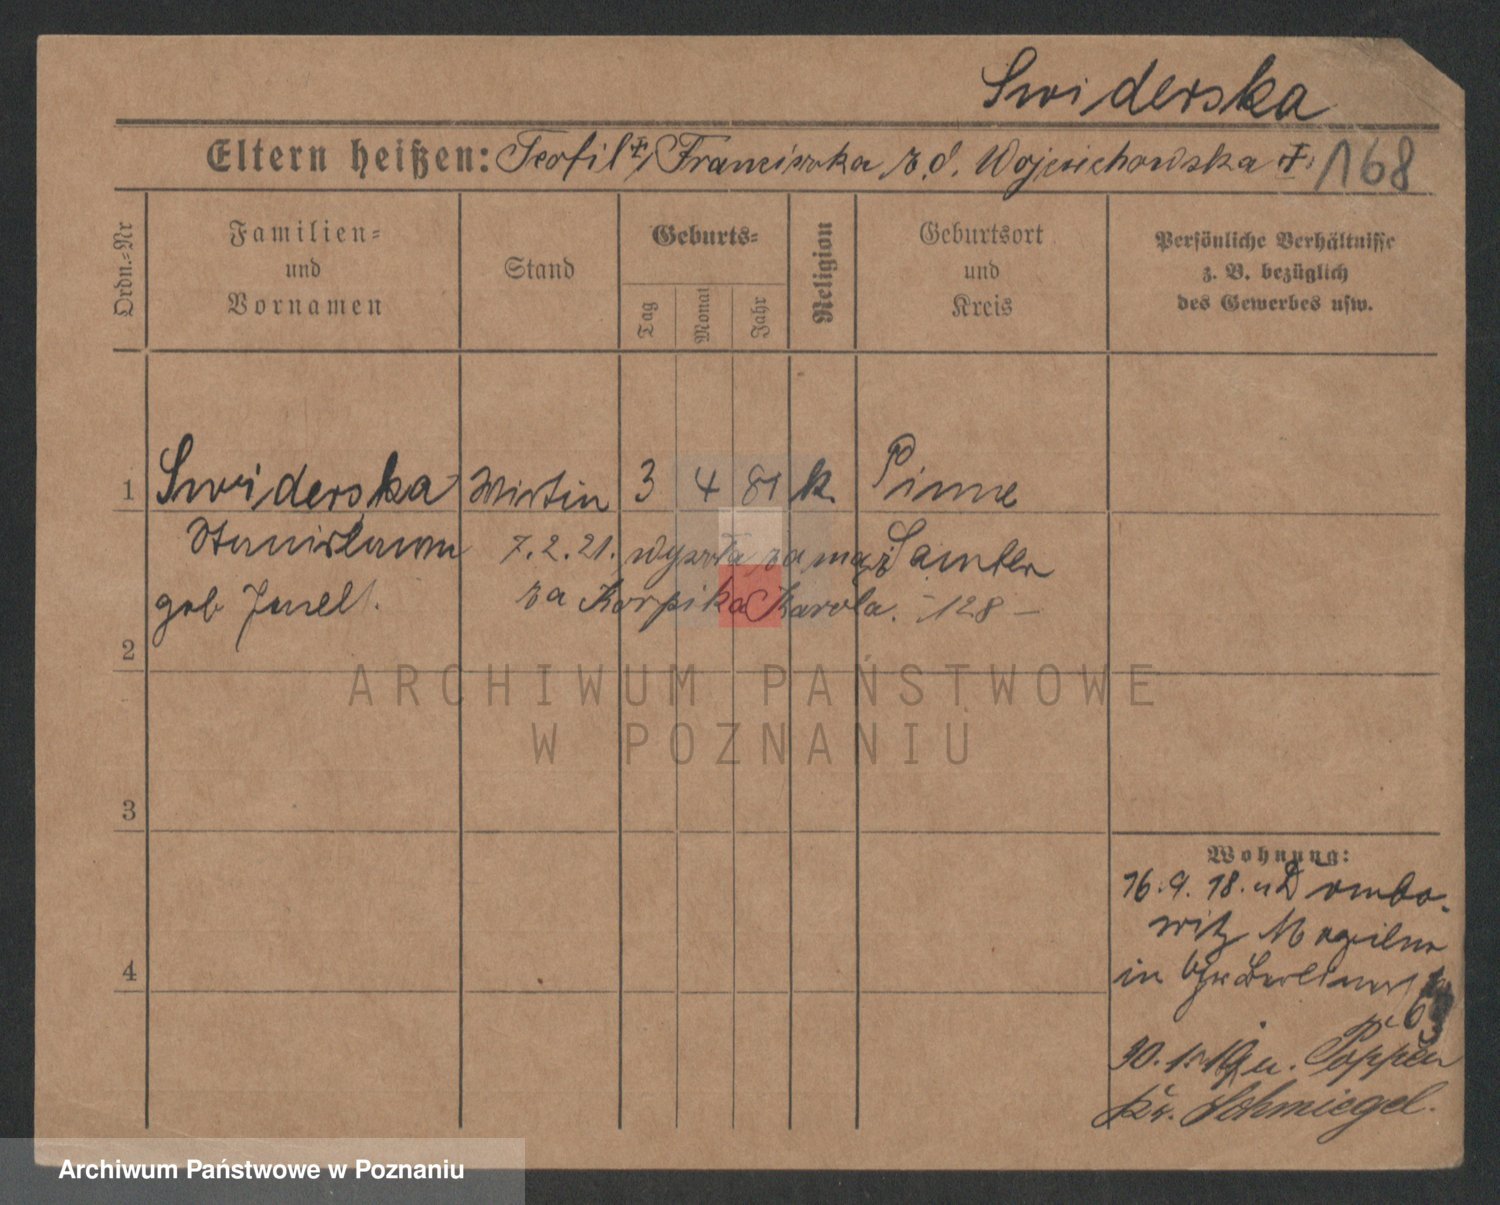 Swiderska
Eltern heißen: Teofil †, Franciszka z d. Wojciechowska †. 168
Ordn.-Nr
Familien-
und
Vornamen
Stand
Geburts-
Tag
Monat
Jahr
Religion
Geburtsort
und
Kreis
Persönliche Verhältnisse
z. B. bezüglich
des Gewerbes usw.
1 Swiderska Wirtin 3 4 81 k. Pinne
Stanislawa 7.2.21. wyszła za mąż Samter
geb. za Korpika Karola. - 128 -
2
3
4
Wohnung:
16.9.18. n Dombo-
witz Mogilno
in
30. 1. 19 n.
Kr. Schmiegel.
ARCHIWUM PAŃSTWOWE
W POZNANIU
Archiwum Państwowe w Poznaniu